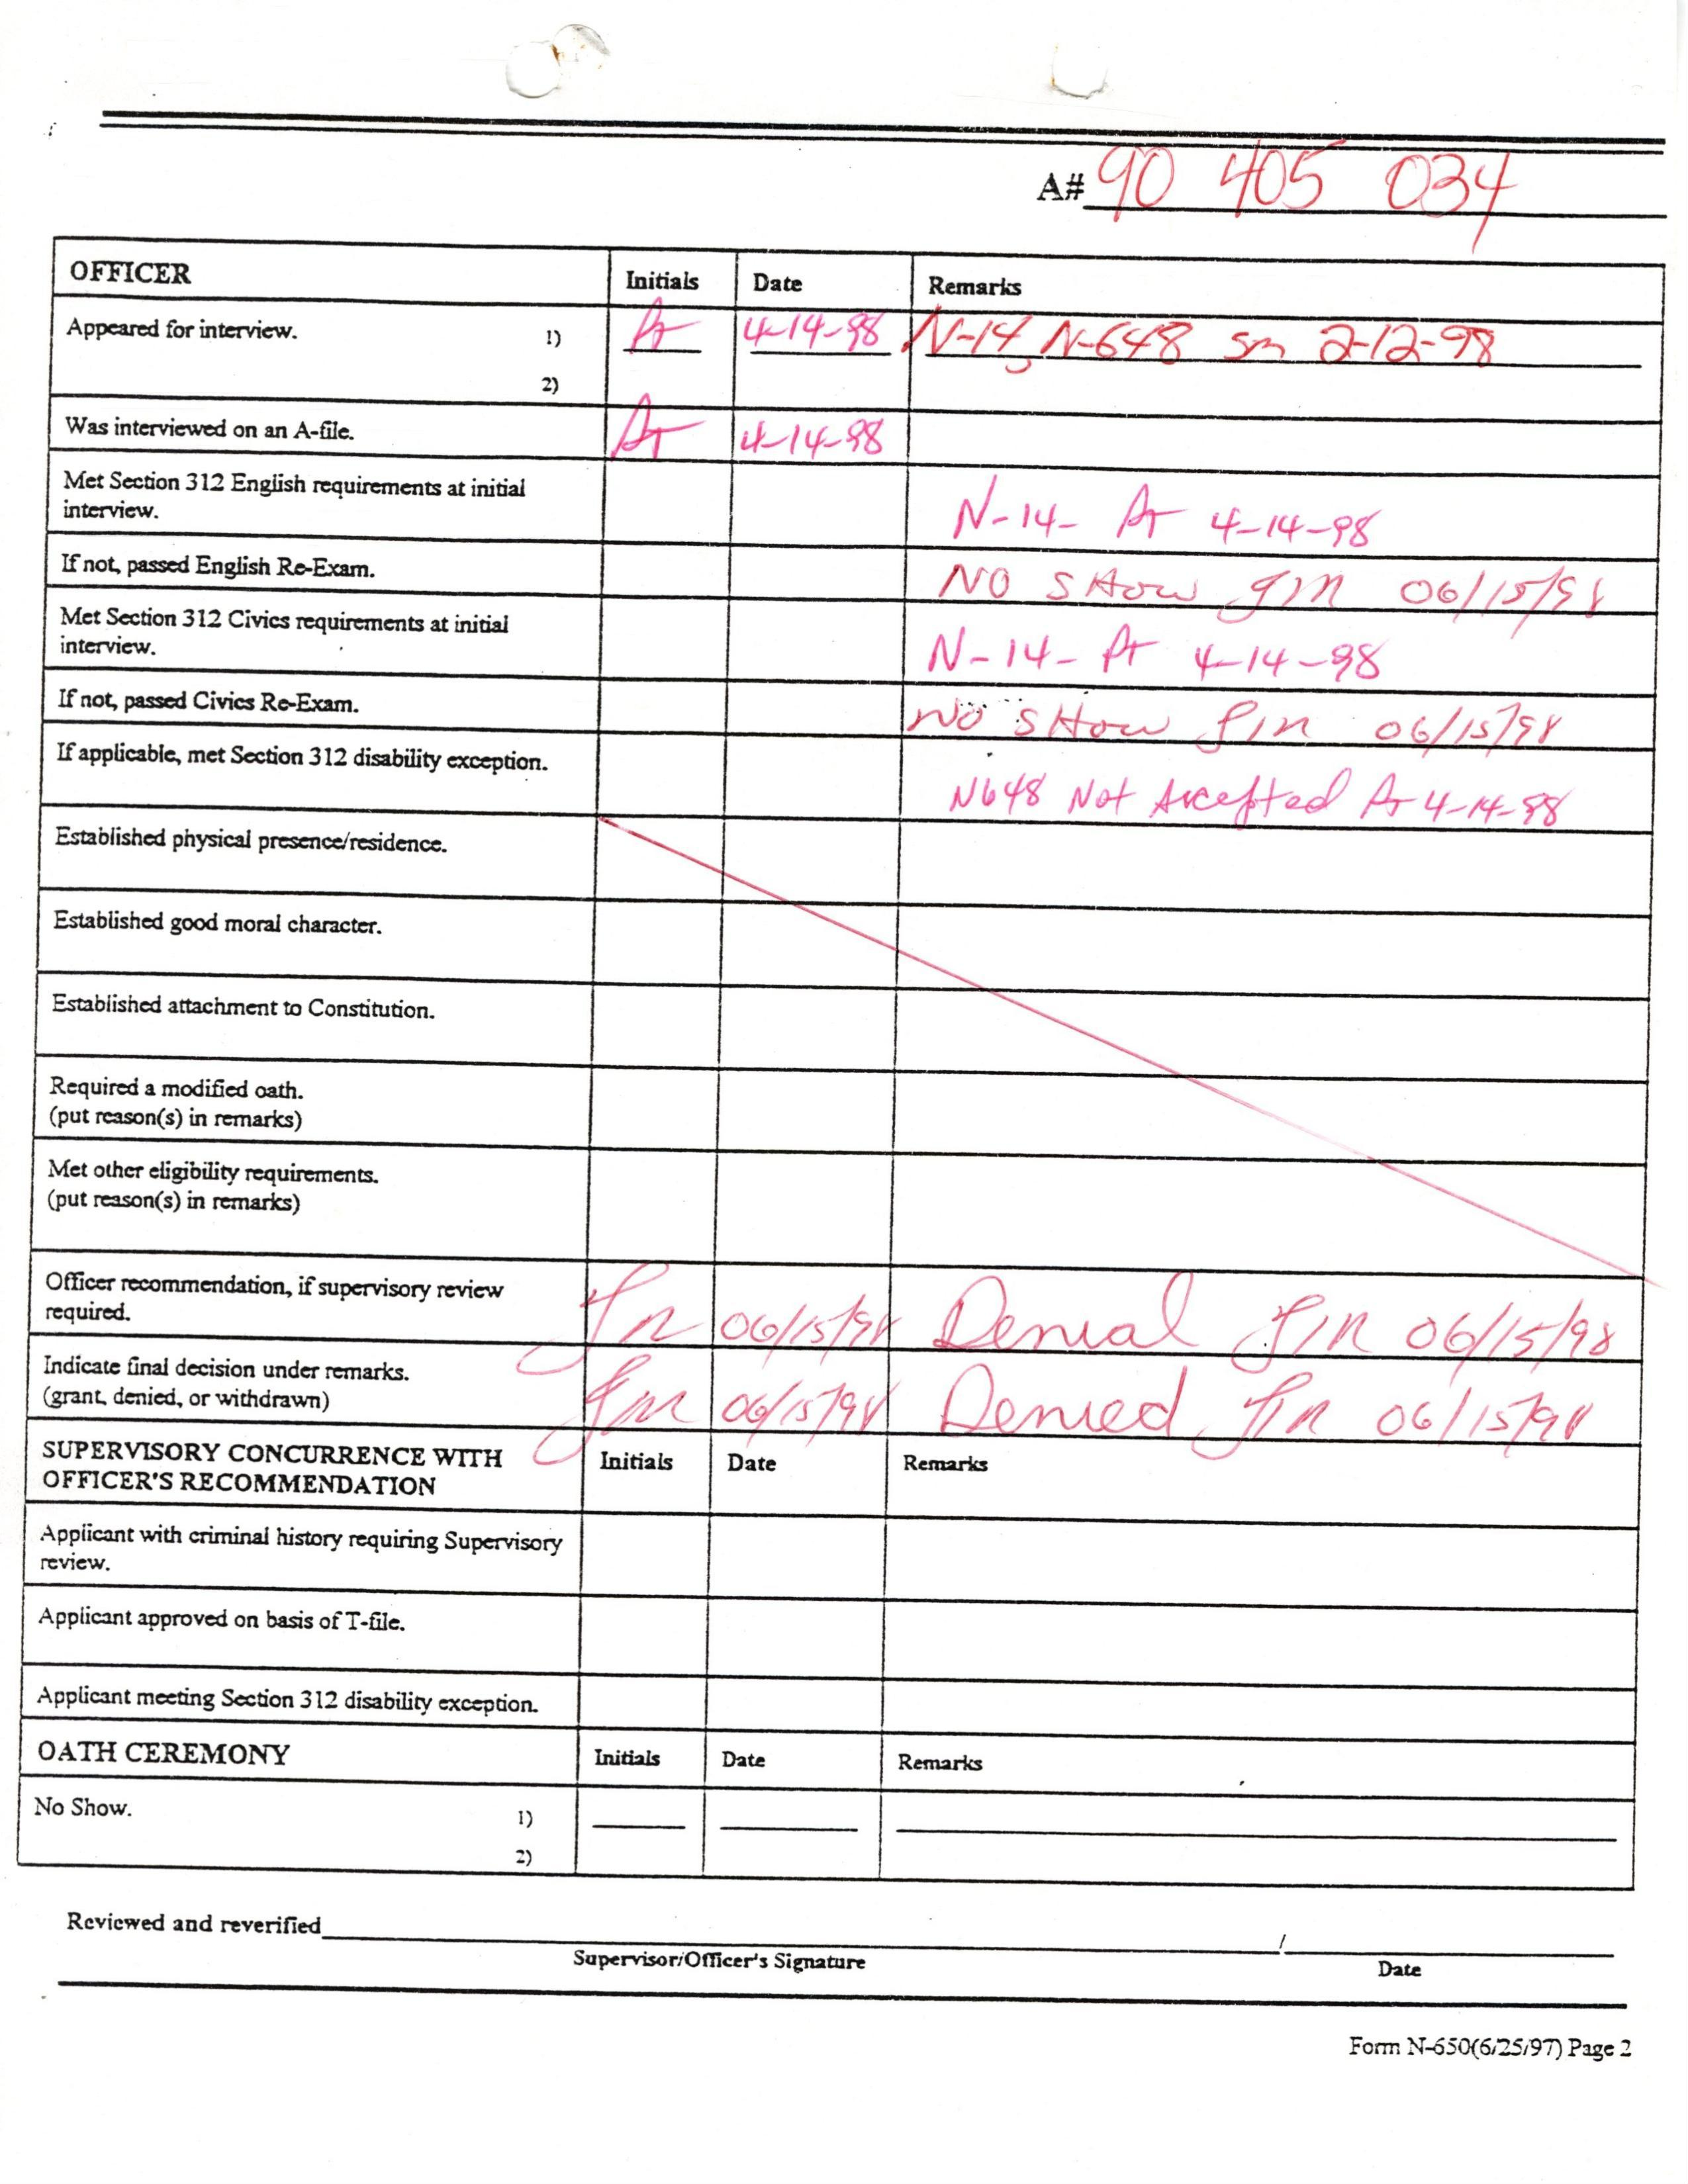 A# 90 405 034
OFFICER Initials Date Remarks
Appeared for interview. 1) 4-14-98 N-14, N-648 sm 2-12-98
2)
Was interviewed on an A-file. 4-14-98
Met Section 312 English requirements at initial
interview. N-14- 4-14-98
If not, passed English Re-Exam. NO SHOW 06/15/98
Met Section 312 Civics requirements at initial
interview. N-14- 4-14-98
If not, passed Civics Re-Exam. NO SHOW 06/15/98
If applicable, met Section 312 disability exception. N648 Not Accepted 4-14-98
Established physical presence/residence.
Established good moral character.
Established attachment to Constitution.
Required a modified oath.
(put reason(s) in remarks)
Met other eligibility requirements.
(put reason(s) in remarks)
Officer recommendation, if supervisory review
required. 06/15/98 Denial 06/15/98
Indicate final decision under remarks.
(grant, denied, or withdrawn) 06/15/98 Denied 06/15/98
SUPERVISORY CONCURRENCE WITH
OFFICER'S RECOMMENDATION Initials Date Remarks
Applicant with criminal history requiring Supervisory
review.
Applicant approved on basis of T-file.
Applicant meeting Section 312 disability exception.
OATH CEREMONY Initials Date Remarks
No Show. 1)
2)
Reviewed and reverified /
Supervisor/Officer's Signature Date
Form N-650(6/25/97) Page 2